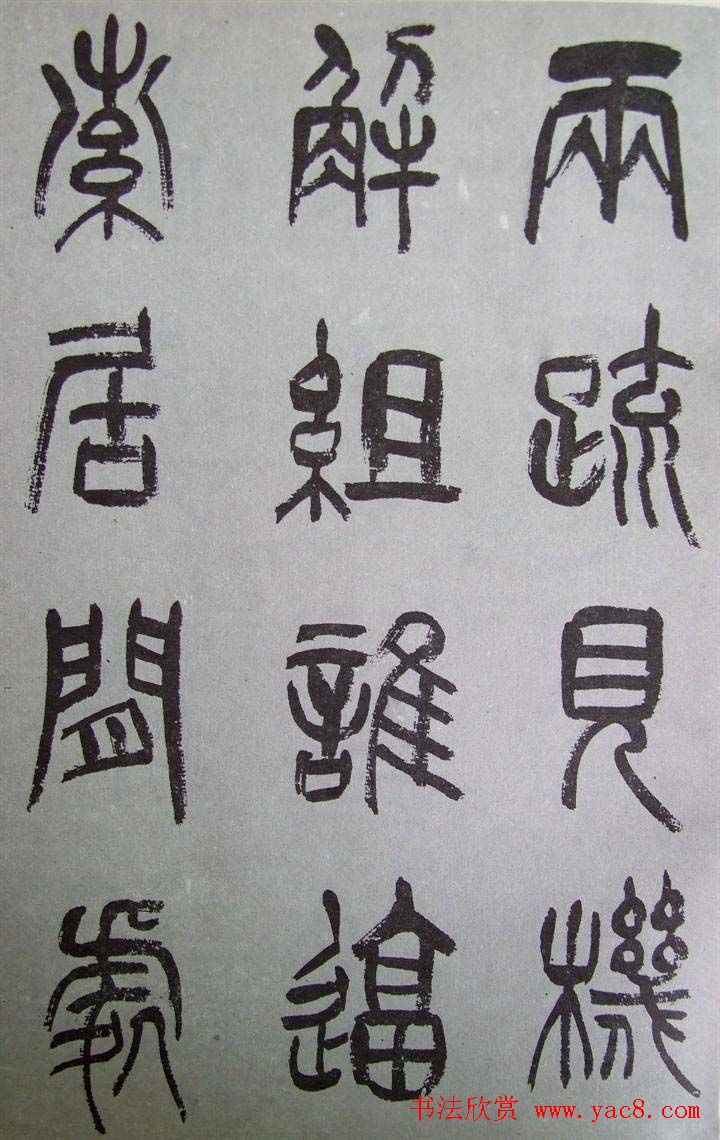 兩疏見機
解組誰逼
索居閒處
书法欣赏 www.yac8.com